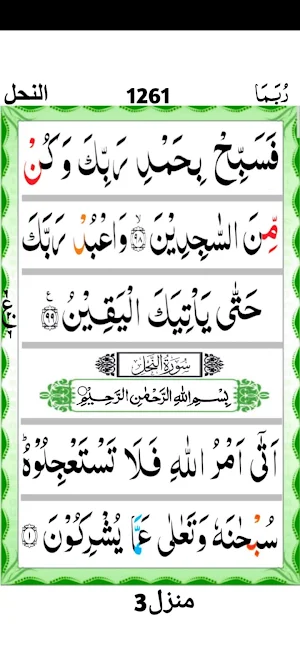 رُبَمَا 1261 النحل
فَسَبِّحْ بِحَمْدِ رَبِّكَ وَكُنْ
مِّنَ السّٰجِدِيْنَ ﴿۹۸﴾ۙ وَاعْبُدْ رَبَّكَ
حَتّٰى يَاْتِيَكَ الْيَقِيْنُ ﴿۹۹﴾ۧ
سُوْرَةُ النَّحْلِ
بِسْمِ اللّٰهِ الرَّحْمٰنِ الرَّحِيْمِ
اَتٰۤى اَمْرُ اللّٰهِ فَلَا تَسْتَعْجِلُوْهُ ؕ
سُبْحٰنَهٗ وَتَعٰلٰى عَمَّا يُشْرِكُوْنَ ﴿۱﴾
منزل3